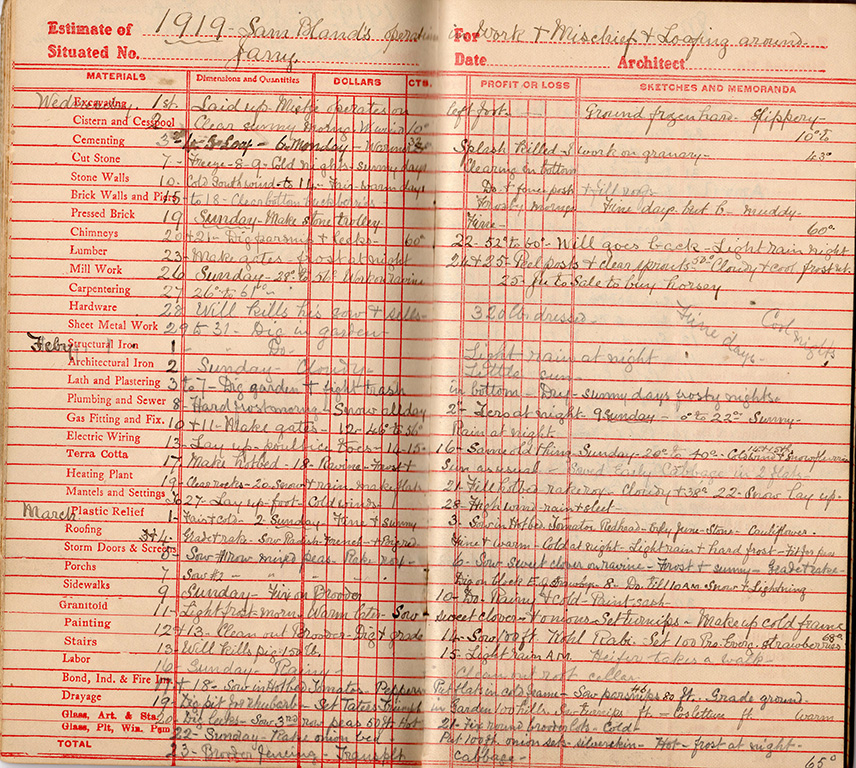 Estimate of 1919 - Sam Bland's operations For Work & Mischief & Loafing around.
Situated No. Jany. Date Architect
MATERIALS Dimensions and Quantities DOLLARS CTS. PROFIT OR LOSS SKETCHES AND MEMORANDA
Wednesday Excavating 1st. Laid up - operates on left foot - Ground frozen hard slippery
Cistern and Cesspool 2 Clear sunny 10° 10° to
Cementing 3 - 6 Monday - Warmer Splash killed - & work on granary - 43°
Cut Stone 7 - Freeze - 8 - 9 - Cold nights - sunny days Clearing in bottom
Stone Walls 10 - Cold South wind - to 14 - Fair - warm days Do & fence post & fill road -
Brick Walls and Piers 15 to 18 - Clear bottom Fine days but b - muddy -
Pressed Brick 19 Sunday - Make stone trolley Fine - 60°
Chimneys 20 + 21 - Dig parsnip & leeks - 60° 22 - 52° to 60° - Will goes back - Light rain night
Lumber 23 - Make gates frost at night 24 & 25 - posts & clear sprouts - 50° Cloudy & cool frost nt.
Mill Work 26 Sunday - 28° to 56° Work on ravine 25 - Sale to buy horsey
Carpentering 27 26° to 61° -
Hardware 28 Will kills his sow & sells - 320 lb. dressed - Fine days - Cool nights
Sheet Metal Work 29 to 31 - Dig in garden -
Feby. Structural Iron 1 " " Do - Light rain at night
Architectural Iron 2 Sunday - Cloudy - Little sun -
Lath and Plastering 3 to 7 - Dig garden & trash in bottom - Dry - sunny days frosty nights.
Plumbing and Sewer 8 - Hard frost morning - Snow all day 2° Zero at night 9 Sunday - 0° to 22° Sunny -
Gas Fitting and Fix. 10 + 11 - Make gates - 12 - 46° to 56° Rain at night
Electric Wiring 13 - Lay up - poultice toes - 14 - 15 - 16 - Same old thing - Sunday - 20° to 40° - Cold
Terra Cotta 17 Make hotbed - 18 - Ravine - Frost & Sun as usual - Sowed Early Cabbage in 2 flats -
Heating Plant 19 - Clear rocks - 20 - Snow & rain - make flats 21 - Fill hotbed - Cloudy + 38° 22 - Snow lay up -
Mantels and Settings 26 27 - Lay up - foot - Cold winds - 28 - High wind - rain & sleet
March Plastic Relief 1 - Fair & cold - 2 Sunday - Fine & sunny 3 - Sow in Hotbed Tomatoes Redhead - Erly June - Stone - Cauliflower.
Roofing 4 Grade & rake - Sow Radish French - & Fine & warm - Cold at night - Light rain & hard frost - for peas
Storm Doors & Screens 5 - Sow #1 row mixed peas - Rake 6 - Sow sweet clover on ravine - Frost & sunny - Grade & rake -
Porches 7 Sow #2 - " " " Dig on block - 8 - Do. till 10 A.M. Snow & Lightning
Sidewalks 9 Sunday - Fix on Brooder 10 - Do. Rainy & Cold - Paint sash
Granitoid 11 - Light frost - morn. Warm later - Sow - sweet clover - & onions - Set turnips - Make up cold frame
Painting 12 + 13 - Clean out Brooder - Dig & grade 14 - Sow 100 ft. Kohl Rabi. Set 100 Strawberries 68°
Stairs 13 - Will kills pig - 150 lb. 15 - Light rain A.M. Heifer takes a walk -
Labor 16 - Sunday - Rainy - Clean out root cellar
Bond, Ind. & Fire Ins. 17 + 18 - Sow in Hotbed Tomatoes - Peppers Put flats in cold frame - Sow parsnips 80 ft. Grade ground
Drayage 19 Dig pit for rhubarb - Set in Garden 100 hills. Sow turnips ft - ft warm
Glass, Art. & Sta. 20 Dig leeks - Sow 3rd row peas 50 ft Hot 21 - Fix round - Cold -
Glass, Plt, Win. Pgm 22 - Sunday - Rake onion bed Put 100 ft. onion sets - silverskin - Hot - frost at night -
TOTAL 23 - Brooder fencing - Transplt cabbage - 65°